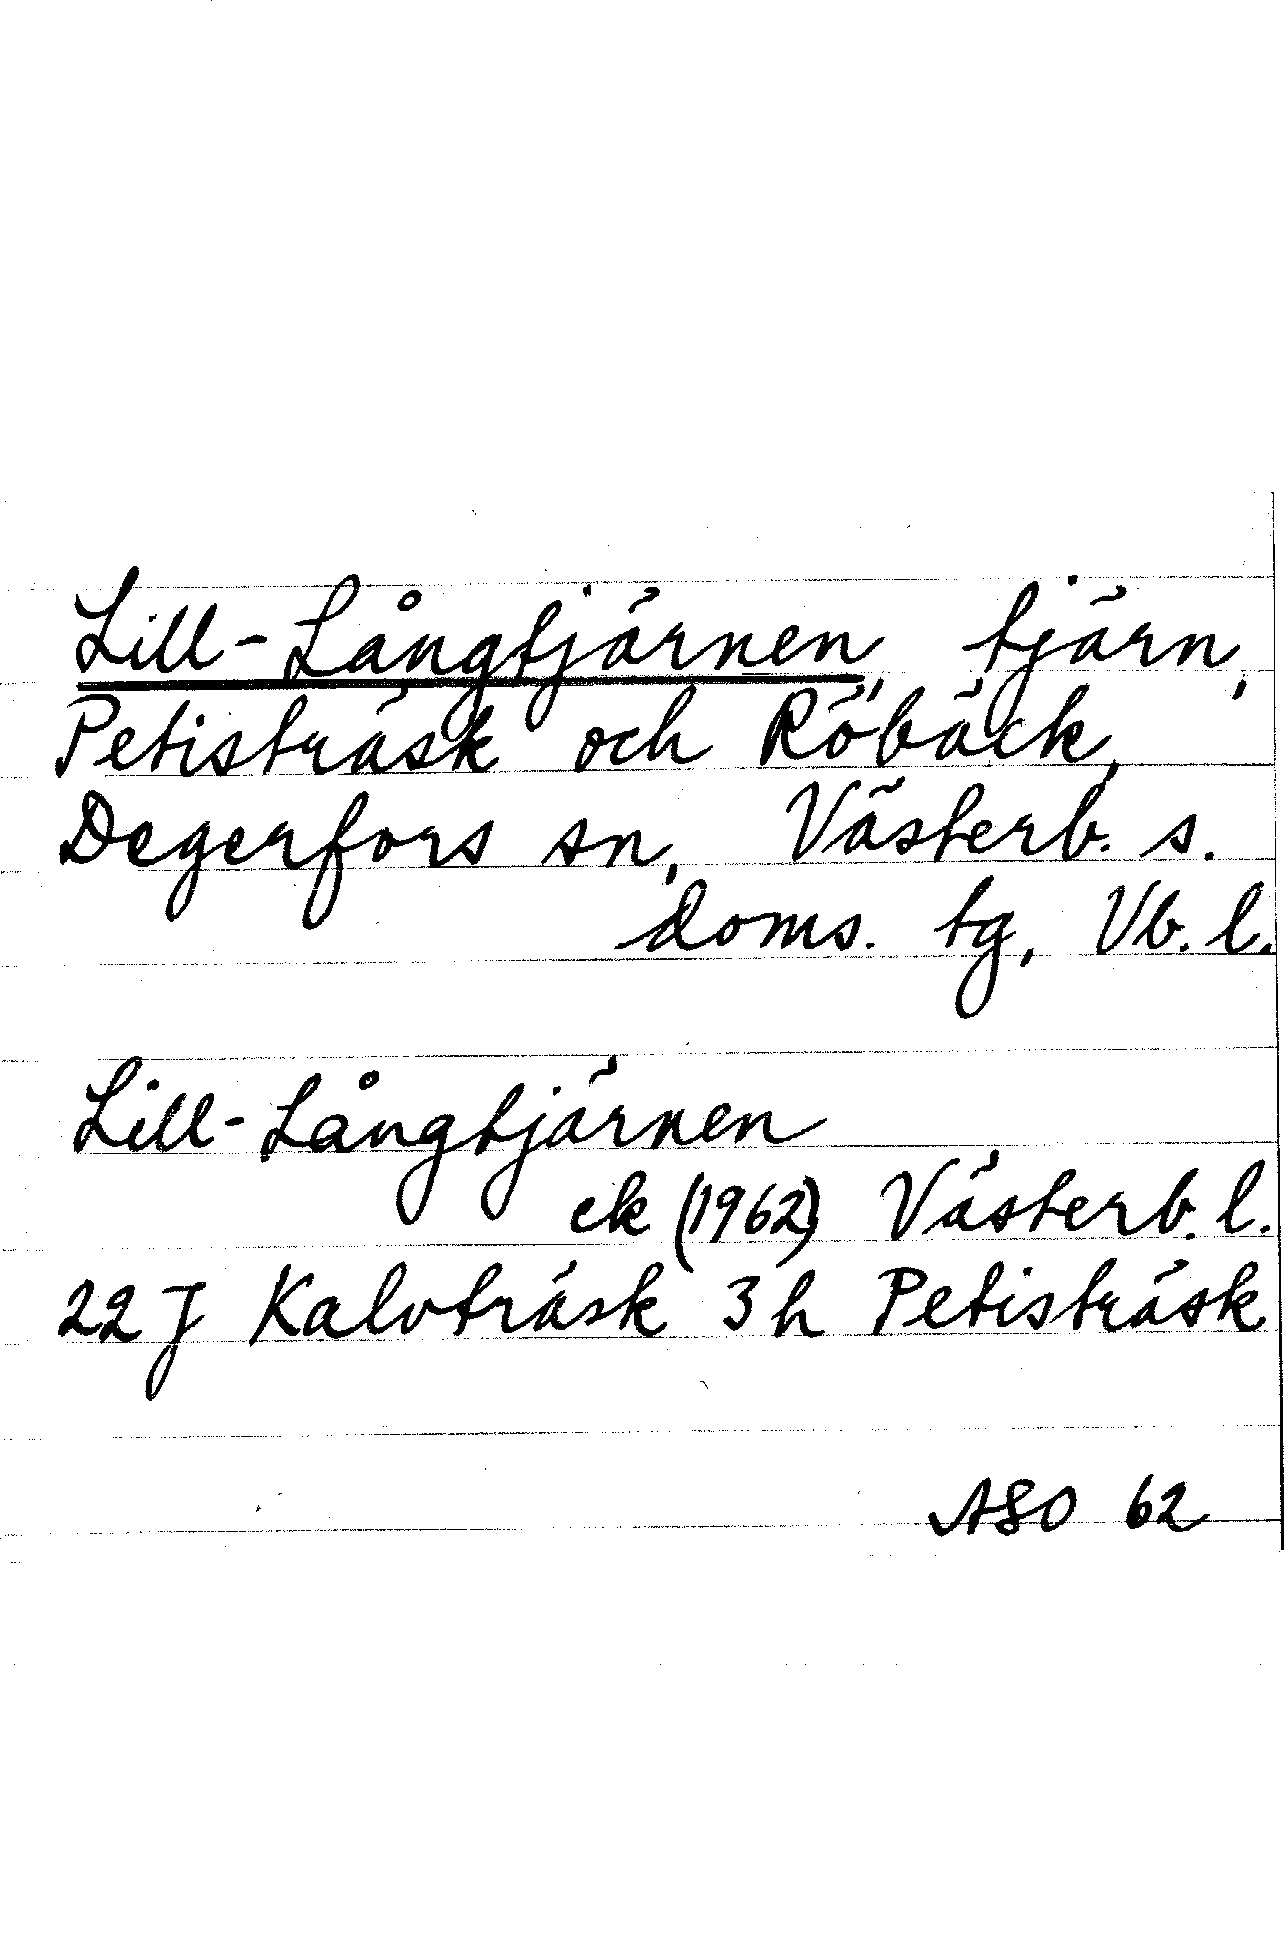 Lill-Långtjärnen, tjärn,
Petisträsk och Röbäck,
Degerfors sn, Västerb. s.
doms. tg, Vb. l.
Lill-Långtjärnen
ek (1962) Västerb. l.
22 J Kalvträsk 3 h Petisträsk
ASO 62